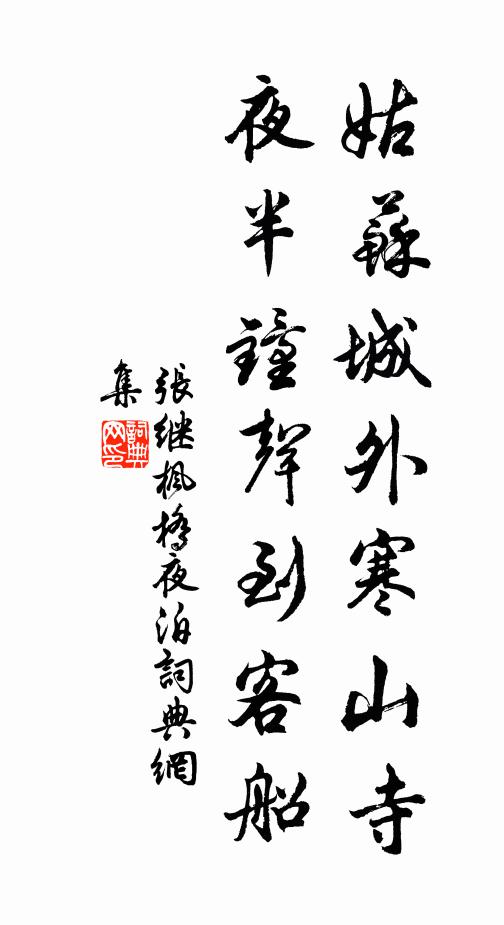 姑蘇城外寒山寺
夜半鐘聲到客船
張继枫橋夜泊詞典網
集
詞典
网印